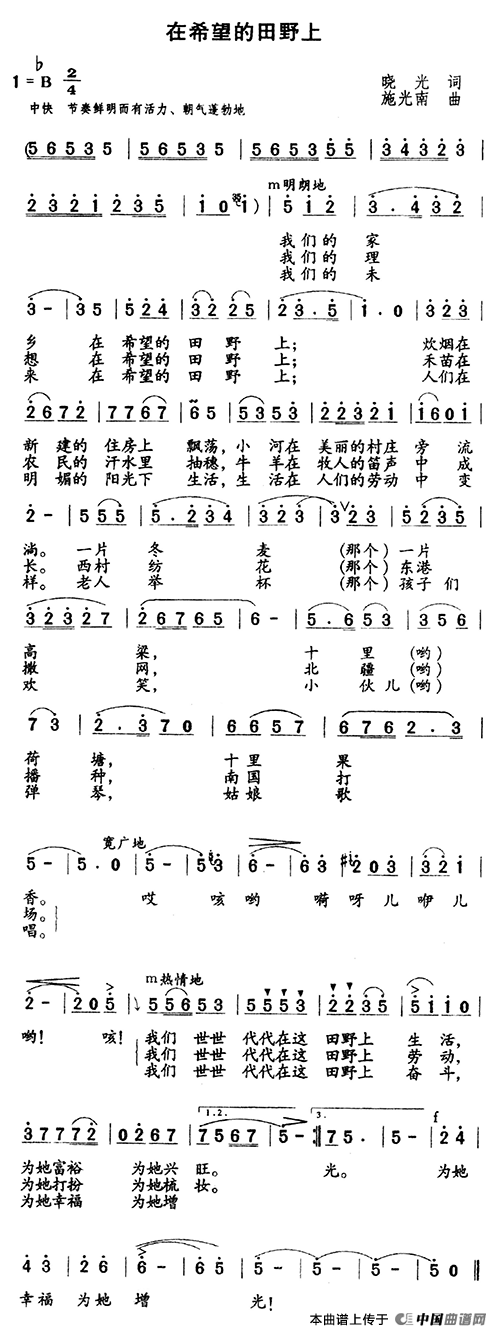 在希望的田野上
1=♭B 2/4
晓光 词
中快 节奏鲜明而有活力、朝气蓬勃地
施光南 曲
(56535 | 56535 | 56535 | 34323 |
m明朗地
2321235 | 10 1 ) | 5 12 | 3. 432 |
我们的 家
我们的 理
我们的 未
3 - | 35 | 524 | 32 25 | 23.5 | 1.0 | 323 |
乡 在 希望的 田 野 上; 炊烟在
想 在 希望的 田 野 上; 禾苗在
来 在 希望的 田 野 上; 人们在
2672 | 7767 | 65 | 5353 | 22321 | 1601 |
新 建的 住房上 飘荡,小 河在 美丽的村庄 旁 流
农 民的 汗水里 抽穗,牛 羊在 牧人的笛声 中 成
明 媚的 阳光下 生活,生 活在 人们的劳动 中 变
2 - | 555 | 5.234 | 323 | 323 | 5235 |
淌。一片 冬 麦 (那个)一片
长。西村 纺 花 (那个)东港
样。老人 举 杯 (那个)孩子们
32327 | 26765 | 6 - | 5.653 | 356 |
高 粱, 十 里 (哟)
撒 网, 北 疆(哟)
欢 笑, 小 伙儿(哟)
73 | 2.370 | 6657 | 6762.3 |
荷 塘, 十 里 果
播 种, 南 国 打
弹 琴, 姑 娘 歌
宽广地
5 - | 5.0 | 5 - | 53 | 6 - | 63 | 203 | 321 |
香。 哎 咳 哟 嗬 呀 儿 咿 儿
场。
唱。
m热情地
2 - | 205 | 55653 | 5553 | 2235 | 5110 |
哟! 咳! 我们 世世 代代在这 田野上 生 活,
我们 世世 代代在这 田野上 劳 动,
我们 世世 代代在这 田野上 奋 斗,
1.2. 3. f
37772 | 0267 | 7567 | 5 - :‖ 75. | 5 - | 24 |
为她富裕 为她兴 旺。 光。 为她
为她打扮 为她梳 妆。
为她幸福 为她增
43 | 26 | 6 - | 65 | 5 - | 5 - | 50 ‖
幸福 为她 增 光!
本曲谱上传于 中国曲谱网